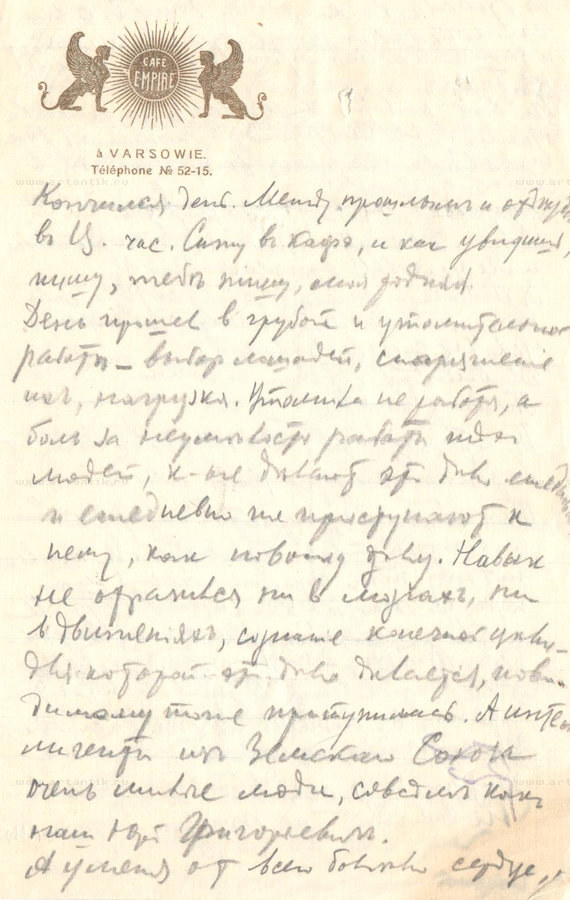 CAFE
EMPIRE
à VARSOWIE.
Téléphone № 52-15.
Кончился день. Между прошлым и
въ Ц. час. Сижу въ кафэ, и как увидишь,
пишу, тебѣ пишу, моя родная.
День прошел в грубой и утомительное
работѣ – выбор лошадей, снаряжение
ихъ, нагрузка. Утомила не работа, а
боль за неумелость работы
людей, к-ые делают это дело
и ежедневно приступают к
нему, как новому делу. Навык
не отразился ни в мозгах, ни
в движениях, сознание конечной
для которой это дело делается, пови-
димому тоже притупилось. А интел
лигенты изъ Земскаго Союза
очень милые люди, совсѣмъ какъ
наш Юрій Григорьевичъ.
А у меня от всего больно сердце,